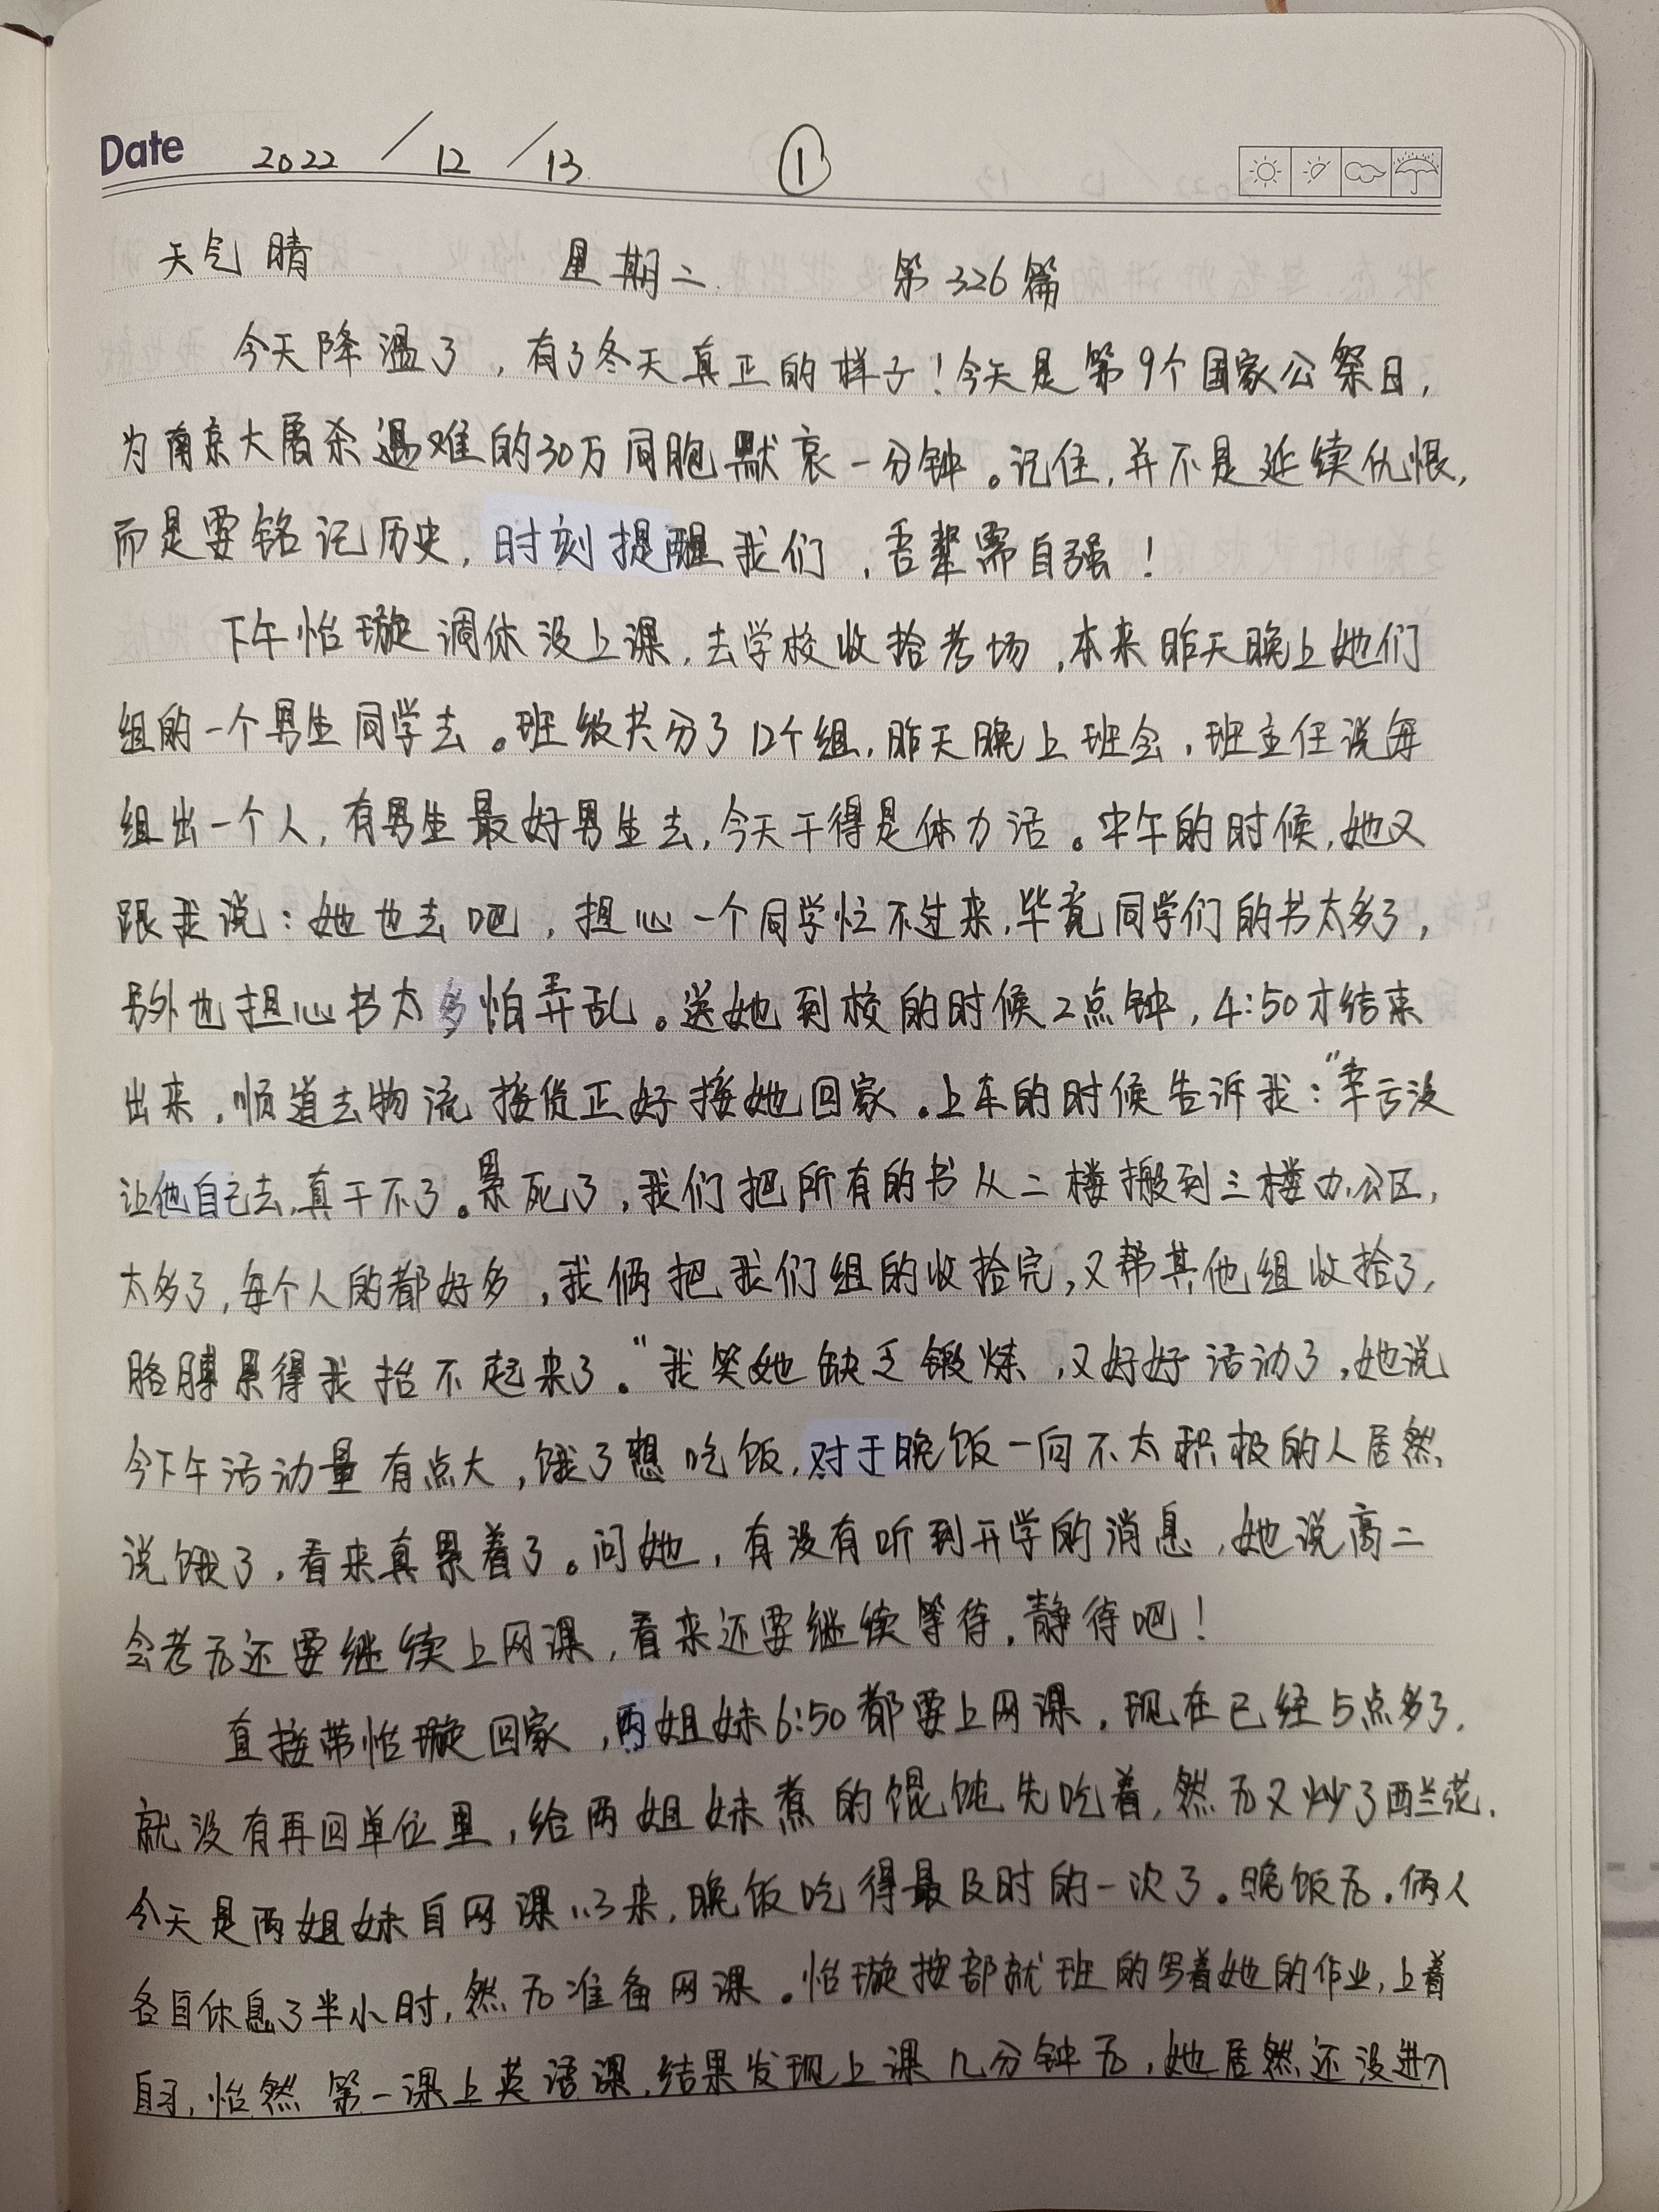 Date 2022 / 12 / 13 ①
天气晴 星期二 第326篇
今天降温了，有了冬天真正的样子！今天是第9个国家公祭日，
为南京大屠杀遇难的30万同胞默哀一分钟。记住，并不是延续仇恨，
而是要铭记历史，时刻提醒我们，吾辈需自强！
下午怡璇调休没上课，去学校收拾考场，本来昨天晚上她们
组的一个男生同学去。班级共分了12个组，昨天晚上班会，班主任说每
组出一个人，有男生最好男生去，今天干得是体力活。中午的时候，她又
跟我说：她也去吧，担心一个同学忙不过来，毕竟同学们的书太多了，
另外也担心书太多怕弄乱。送她到校的时候2点钟，4:50才结束
出来，顺道去物流接货正好接她回家。上车的时候告诉我：“幸亏没
让他自己去，真干不了。累死了，我们把所有的书从二楼搬到三楼办公区，
太多了，每个人的都好多，我俩把我们组的收拾完，又帮其他组收拾了，
胳膊累得我抬不起来了。”我笑她缺乏锻炼，又好好活动了，她说
今下午活动量有点大，饿了想吃饭，对于晚饭一向不太积极的人居然
说饿了，看来真累着了。问她，有没有听到开学的消息，她说高二
会考后还要继续上网课，看来还要继续等待，静待吧！
直接带怡璇回家，两姐妹6:50都要上网课，现在已经5点多了，
就没有再回单位里，给两姐妹煮的馄饨先吃着，然后又炒了西兰花，
今天是两姐妹自网课以来，晚饭吃得最及时的一次了。晚饭后，俩人
各自休息了半小时，然后准备网课。怡璇按部就班的写着她的作业，上着
自习，怡然第一课上英语课，结果发现上课几分钟后，她居然还没进入